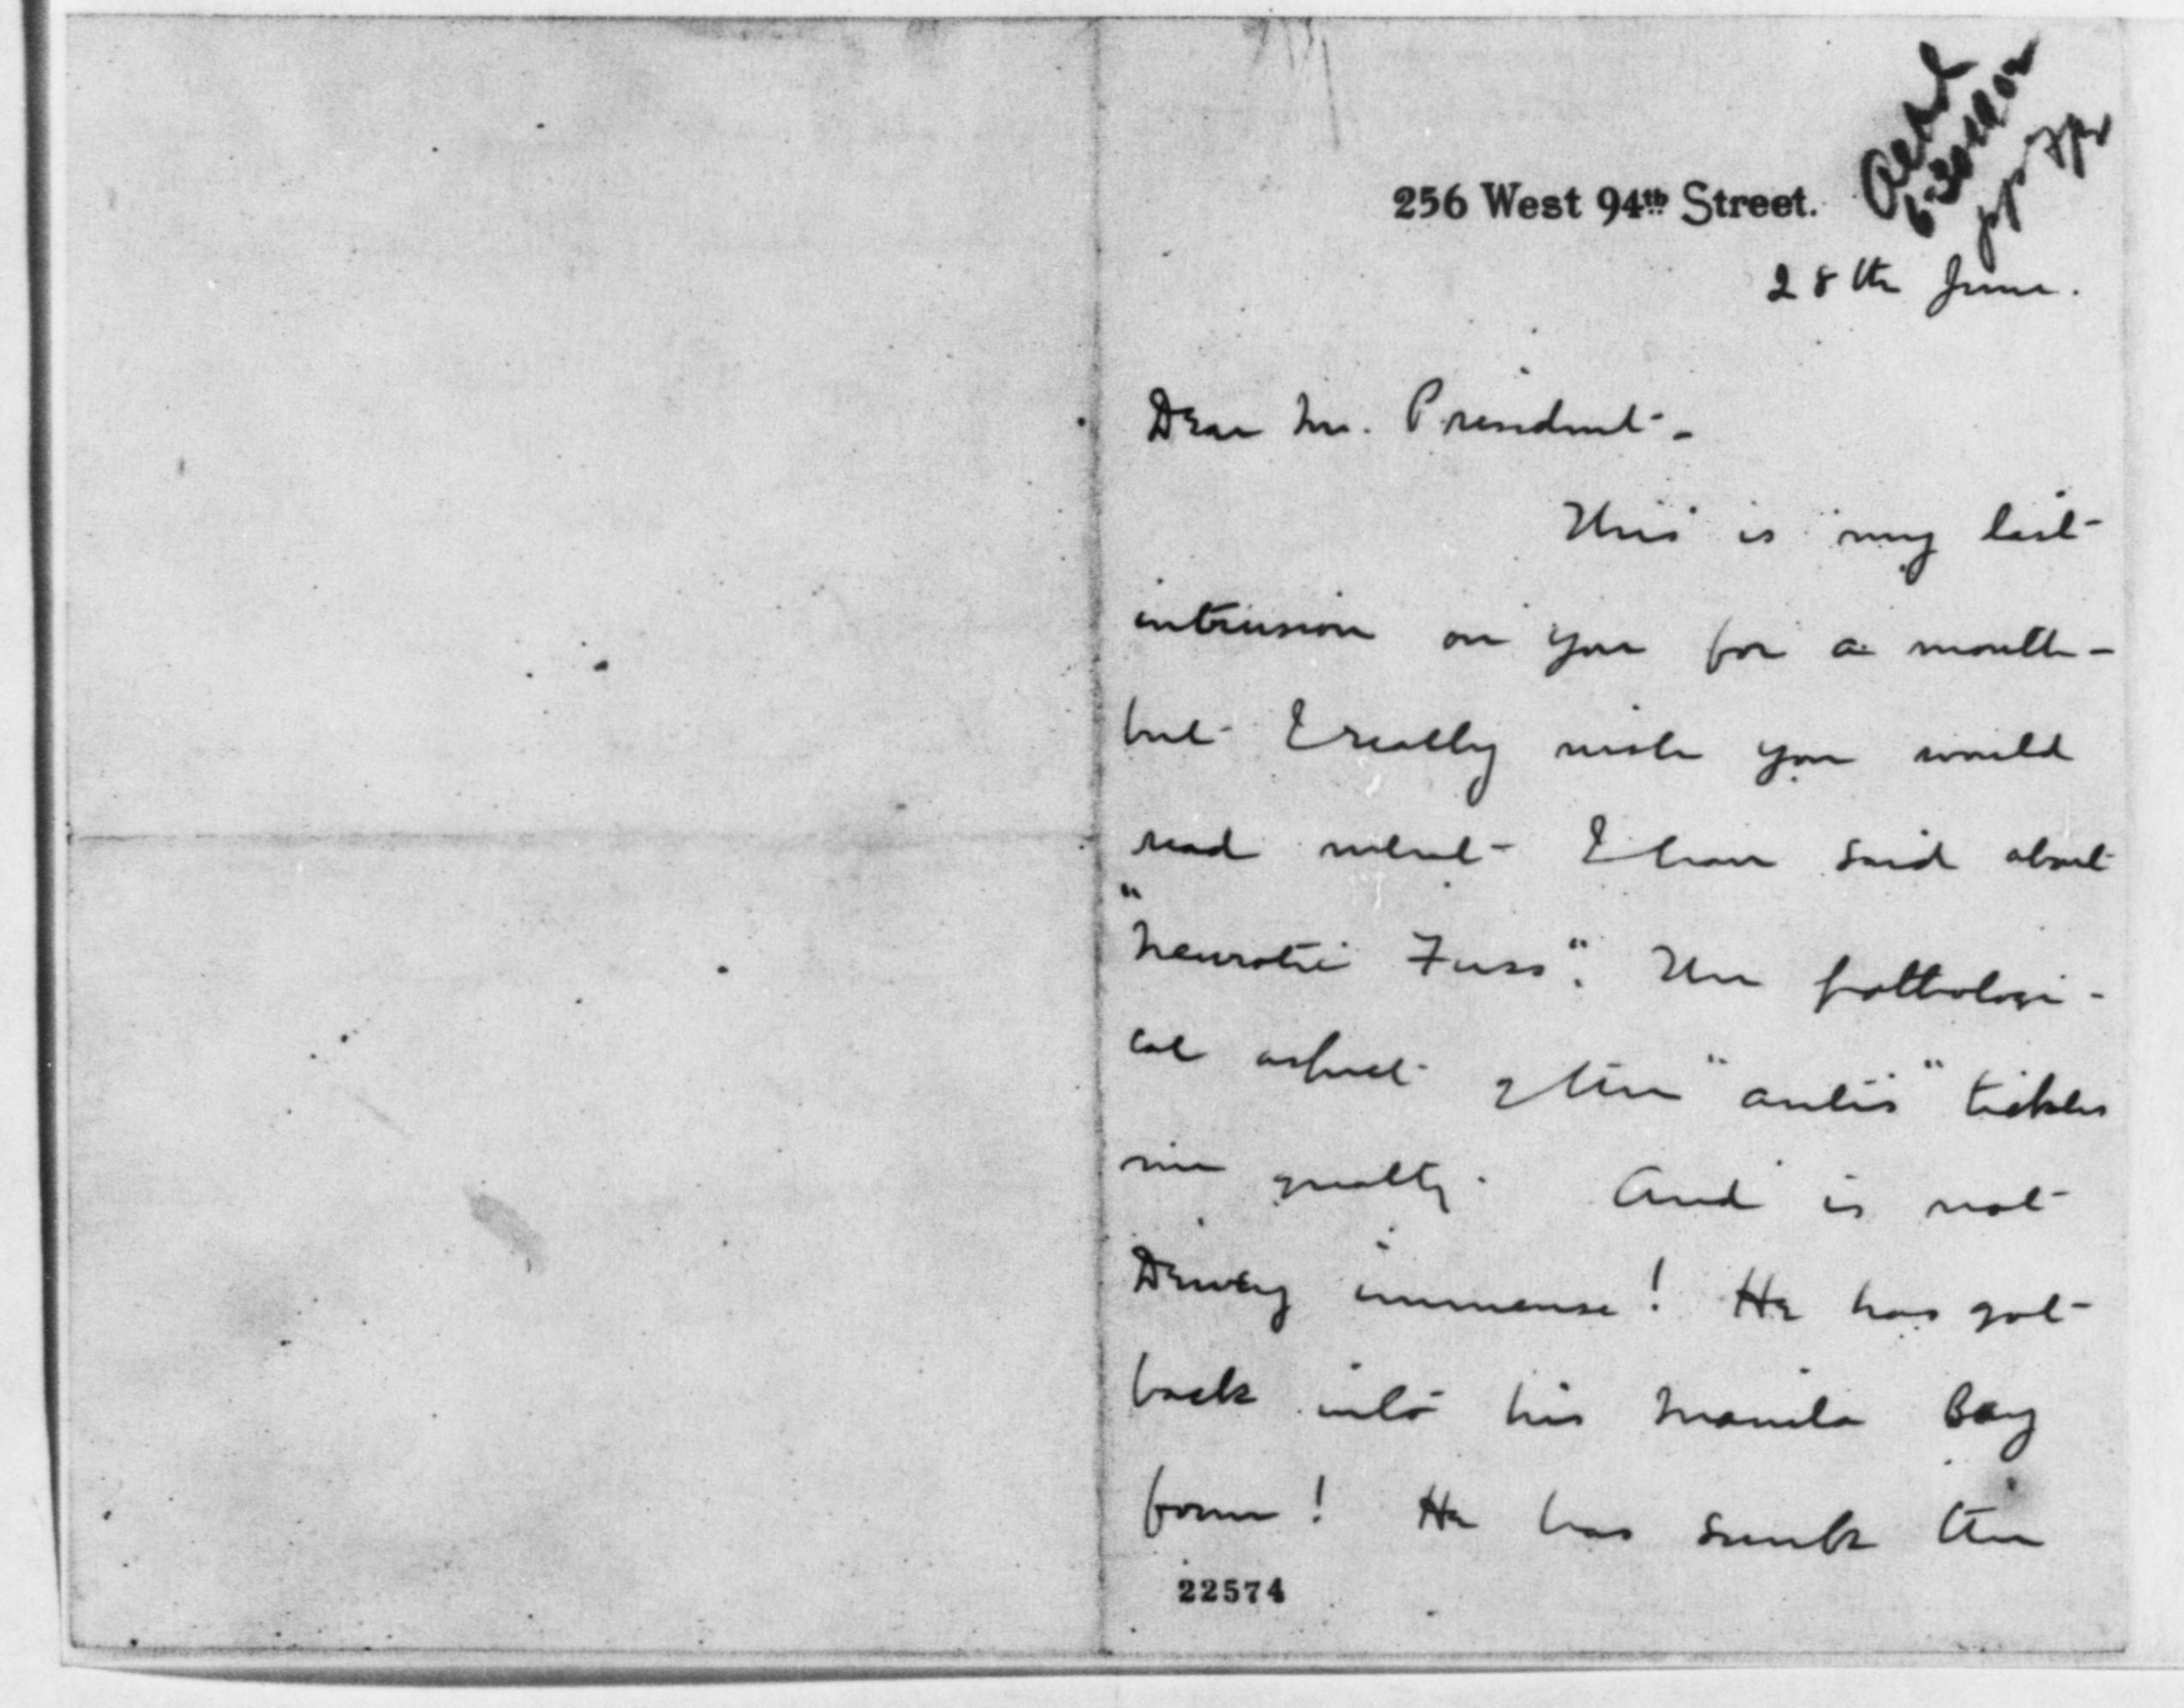 Ackd
6-30-1902
256 West 94th Street.
28th June.
Dear Mr. President -
This is my last
intrusion on you for a month -
but I really wish you would
read what I have said about
"Neurotic Fuss". The pathologi-
cal aspect of the "antis" tickles
me greatly. And is not
Dewey immense! He has got
back into his Manila Bay
form! He has sunk the
22574